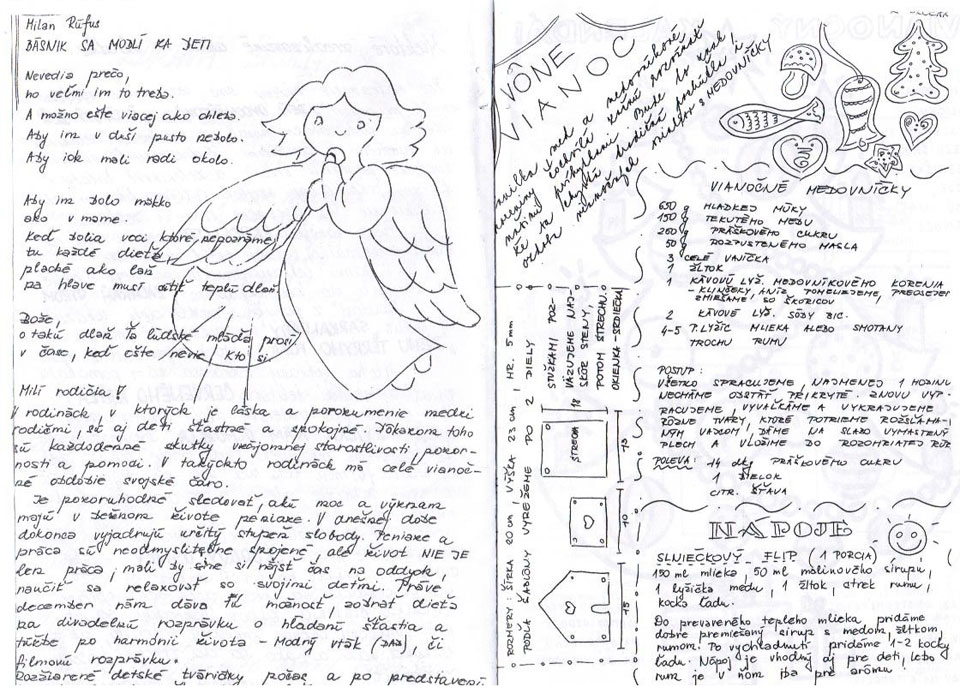 Milan Rúfus
BÁSNIK SA MODLÍ ZA DETI
Nevedia prečo,
no veľmi im to treba.
A možno ešte viacej ako chleba.
Aby im v duši pusto nebolo.
Aby ich mali radi okolo.
Aby im bolo mäkko
ako v mame.
Keď bolia veci, ktoré nepoznáme,
tu každé dieťa,
plaché ako laň
na hlave musí cítiť teplú dlaň.
Bože,
o takú dlaň Ťa ľudské mláďa prosí
v čase, keď ešte nevie, kto si.
Milí rodičia!
V rodinách, v ktorých je láska a porozumenie medzi
rodičmi, sú aj deti šťastné a spokojné. Dôkazom toho
sú každodenné skutky vzájomnej starostlivosti, pozor-
nosti a pomoci. V takýchto rodinách má celé vianoč-
né obdobie svojské čaro.
Je pozoruhodné sledovať, akú moc a význam
majú v bežnom živote peniaze. V dnešnej dobe
dokonca vyjadrujú určitý stupeň slobody. Peniaze a
práca sú neodmysliteľne spojené, ale život NIE JE
len práca, mali by sme si nájsť čas na oddych,
naučiť sa relaxovať so svojimi deťmi. Práve
december nám dáva tú možnosť, zobrať dieťa
na divadelnú rozprávku o hľadaní šťastia a
túžbe po harmónii života - Modrý vták (), či
filmovú rozprávku.
Rozžiarené detské tváričky počas a po predstavení
VÔNE
VIANOC
VIANOČNÉ MEDOVNÍČKY
650 g HLADKEJ MÚKY
150 g TEKUTÉHO MEDU
260 g PRÁŠKOVÉHO CUKRU
50 g ROZPUSTENÉHO MASLA
3 CELÉ VAJÍČKA
1 ŽĹTOK
1 KÁVOVÚ LYŽ. MEDOVNÍKOVÉHO KORENIA
- KLINČEKY, ANÍZ POMELIEME, PREOSEJEME
ZMIEŠAME SO ŠKORICOU
2 KÁVOVÉ LYŽ. SÓDY BIC.
4-5 P. LYŽÍC MLIEKA ALEBO SMOTANY
TROCHU RUMU
POSTUP:
VŠETKO SPRACUJEME, NAJMENEJ 1 HODINU
NECHÁME ODSTÁŤ PRIKRYTÉ. ZNOVU VYP-
RACUJEME, VYVAĽKÁME A VYKRAJUJEME
RÔZNE TVARY, KTORÉ POTRIEME ROZŠĽAHA-
NÝM VAJCOM, DÁME NA SLABO VYMASTENÝ
PLECH A VLOŽÍME DO ROZOHRIATEJ RÚR
POLEVA: 14 dkg PRÁŠKOVÉHO CUKRU
1 BIELOK
CITR. ŠŤAVA
ROZMERY: ŠÍRKA 20 cm, VÝŠKA 23 cm, HR. 5mm
PODĽA ŠABLÓNY VYREŽEME PO 2 DIELY
STUŽKAMI POZ-
VÄZUJEME NAJ-
SKÔR STENY,
POTOM STRECHU.
OKIENKA - SRDIEČKA
18
STRECHA
13
10
15
NÁPOJE
SLNIEČKOVÝ FLIP (1 PORCIA)
150 ml mlieka, 50 ml malinového sirupu,
1 lyžička medu, 1 žĺtok, strek rumu,
kocka ľadu.
Do prevareného teplého mlieka pridáme
dobre premiešaný sirup s medom, žĺtkom,
rumom. Po vychladnutí pridáme 1-2 kocky
ľadu. Nápoj je vhodný aj pre deti, lebo
rum je v ňom iba pre arómu.